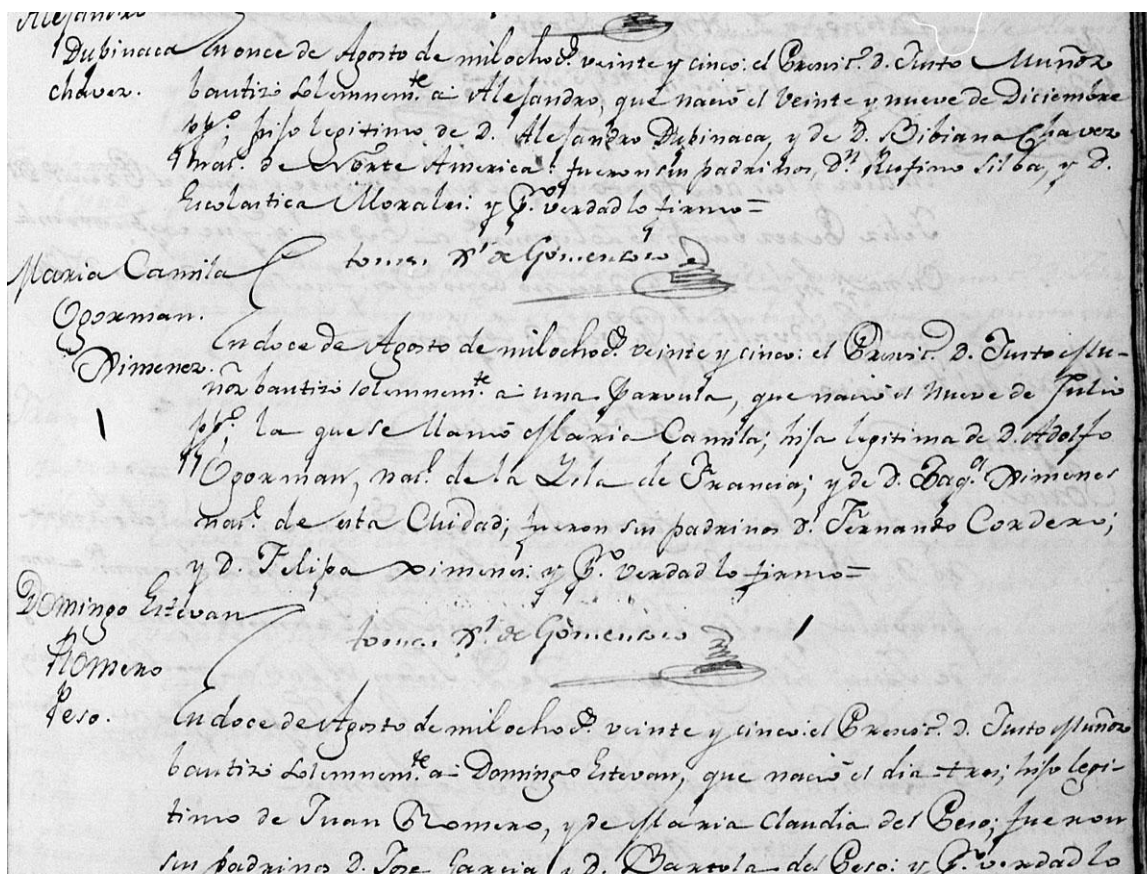 Alejandro
Dubinaca
chavez.
En once de Agosto de milochos. veinte y cinco: el Presvit. D. Justo Muñoz
bautizó solemnemte. a Alejandro, que nació el veinte y nueve de Diciembre
ppo; hijo legitimo de D. Alejandro Dubinaca, y de D. Bibiana Chavez
nat. de Norte America: fueron sus padrinos, Dn. Rufino Silba, y D.
Escolastica Morales: y pr. verdad lo firmo=
tomas Xr. de Gomensoro
Maria Camila
Ogorman.
Ximenez.
En doce de Agosto de milochos. veinte y cinco: el Presvit. D. Justo Mu-
ñoz bautizó solemnemte. a una parvula, que nació el nueve de Julio
ppo; la que se llamó Maria Camila; hija legitima de D. Adolfo
Ogorman, nat. de la Isla de Francia; y de D. Joaqn. Ximenes
nat. de esta Ciudad; fueron sus padrinos D. Fernando Cordero;
y D. Felipa Ximenes: y pr. verdad lo firmo=
tomas Xr. de Gomensoro
Domingo Estevan
Romero
Peso.
En doce de Agosto de milochos. veinte y cinco: el Presvit. D. Justo Muñoz
bautizó solemnemte. a Domingo Estevan, que nació el dia tres; hijo legi-
timo de Juan Romero, y de Maria Claudia del Peso; fueron
sus padrinos D. Jose Garcia y D. Bartola del Peso: y pr. verdad lo